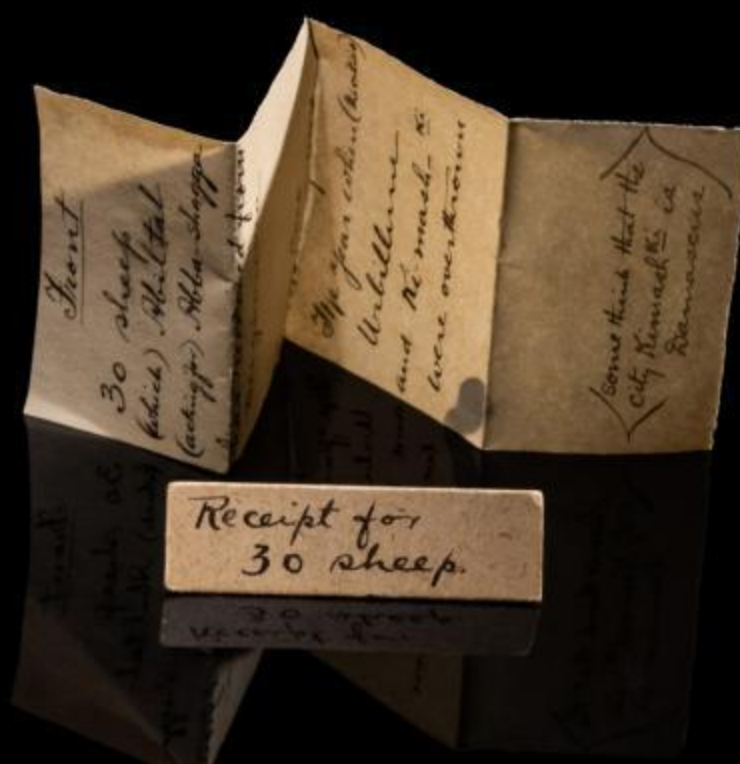 Front
30 sheep
(which) Abiltal
(acting for) Abba-Shagga
from
The year when
Urbillum
and Ki-mash-ki
were overthrown
(some think that the
city Kimash ki is
Damascus)
Receipt for
30 sheep.